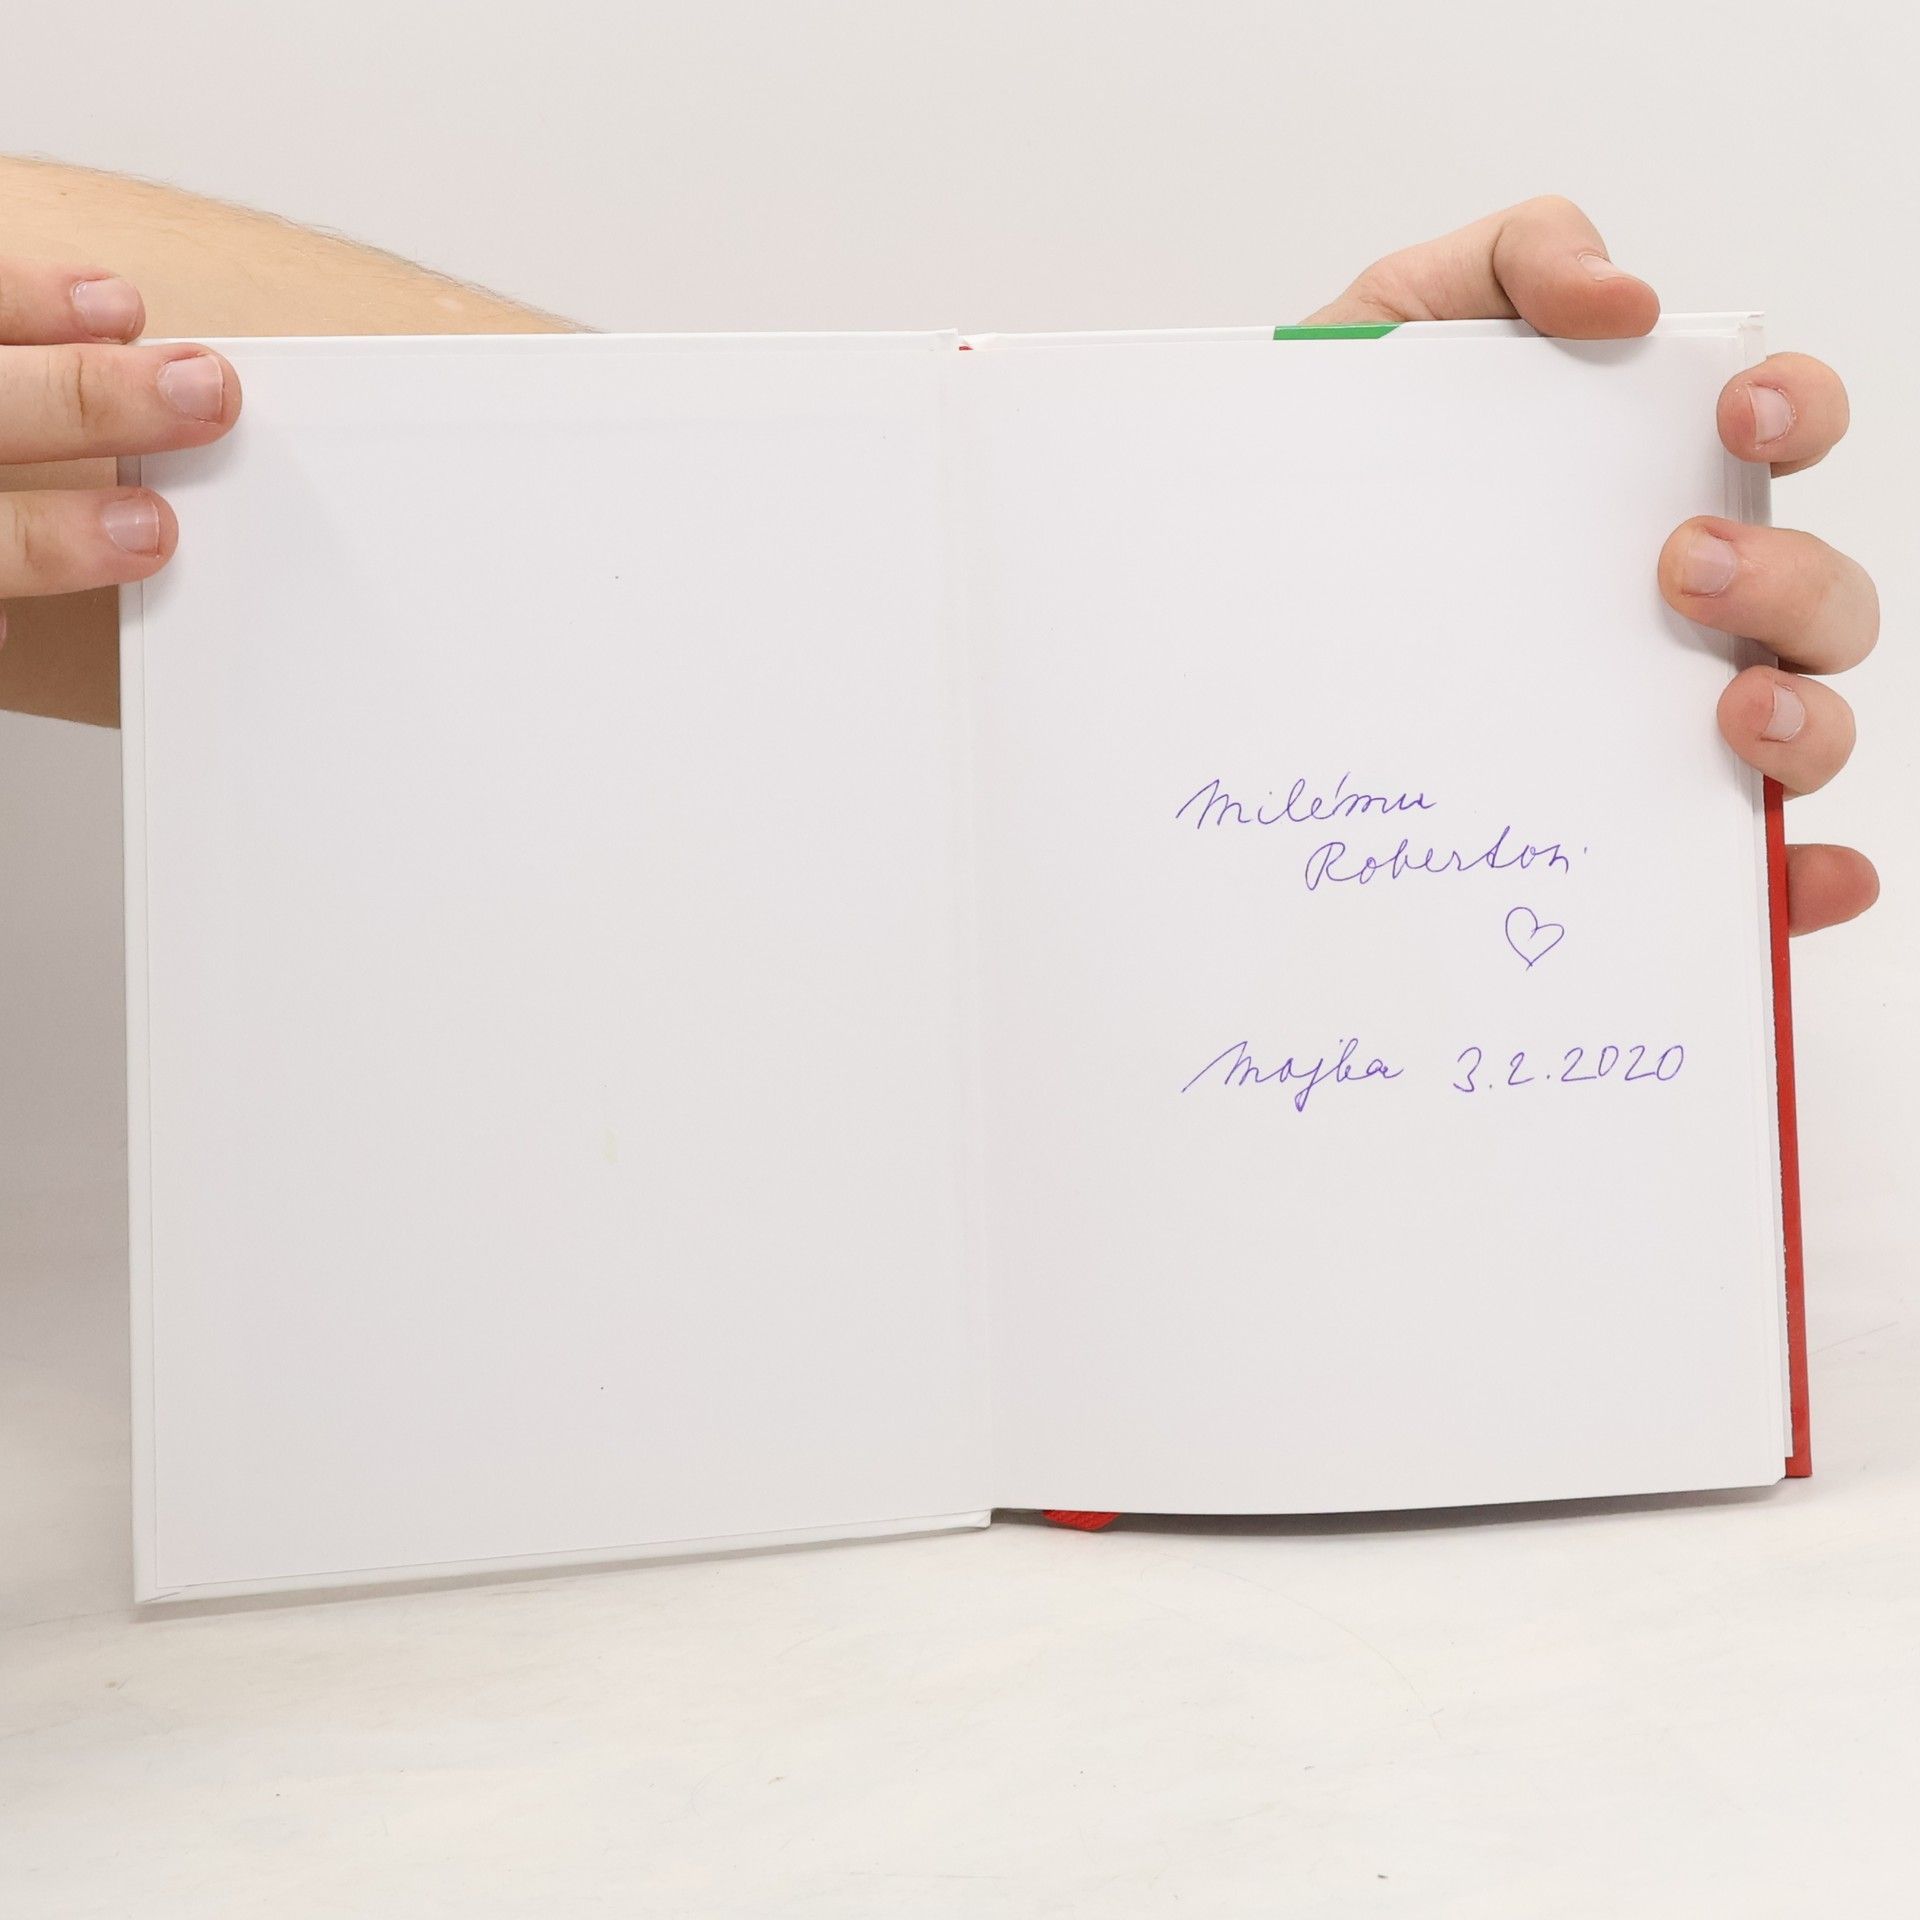 Milému
Robertovi
Majka 3.2.2020